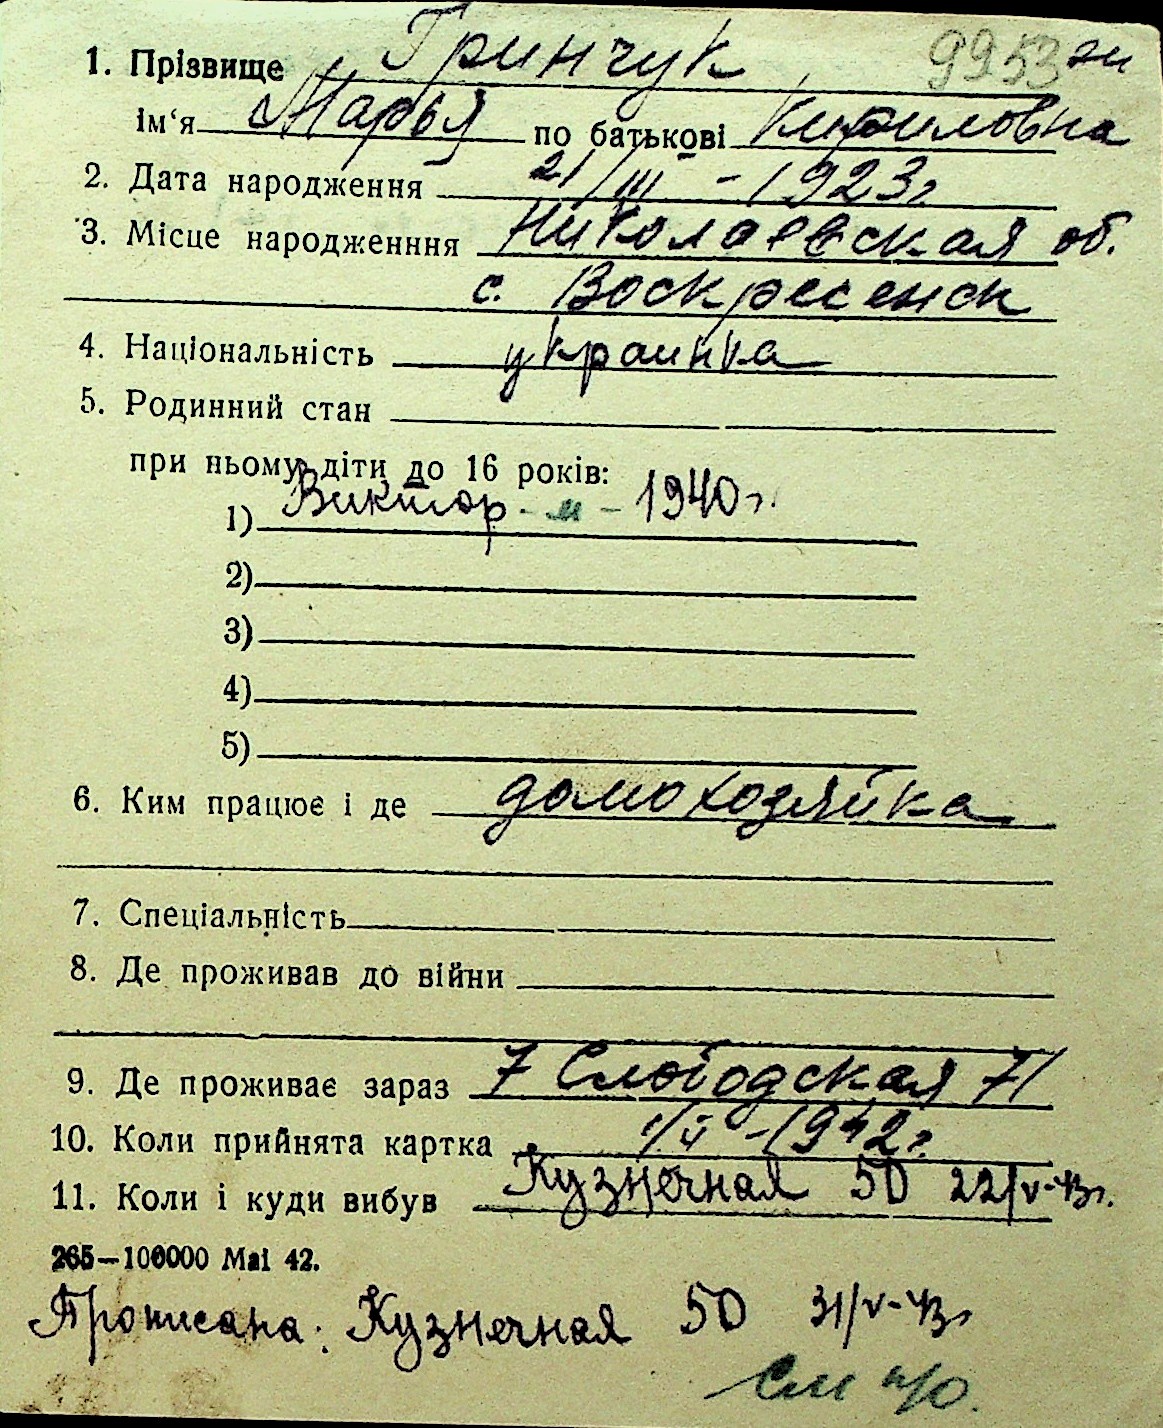 9953 эи
1. Прізвище Гринчук
ім‘я Марья по батькові Кириловна
2. Дата народження 21/III - 1923г
3. Місце народженння Николаевская об.
с. Воскресенск
4. Національність украинка
5. Родинний стан
при ньому діти до 16 років:
1) Виктор - м - 1940г.
2)
3)
4)
5)
6. Ким працює і де домохозяйка
7. Спеціальність
8. Де проживав до війни
9. Де проживає зараз 7 Слободская 71
10. Коли прийнята картка - 1942г.
11. Коли і куди вибув Кузнечная 50 22/V-43г.
265—100000 Mai 42.
Прописана: Кузнечная 50 31/V-43г
См н/о.